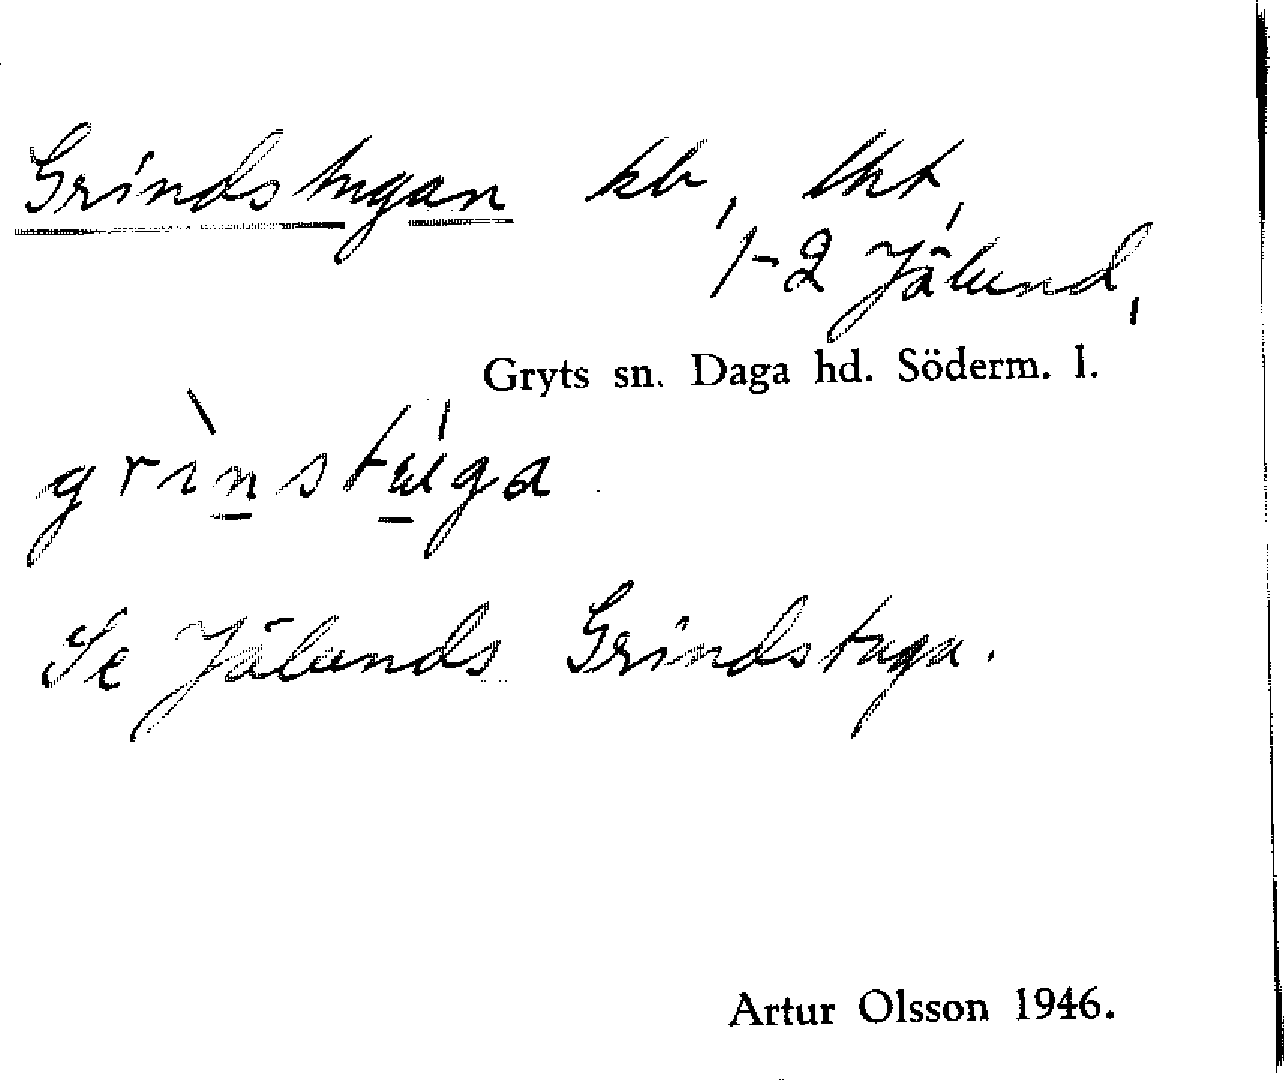 Grindstugan kb, lht,
1-2 Jälund,
Gryts sn. Daga hd. Söderm. l.
grìnstúga
Se Jälunds Grindstuga.
Artur Olsson 1946.